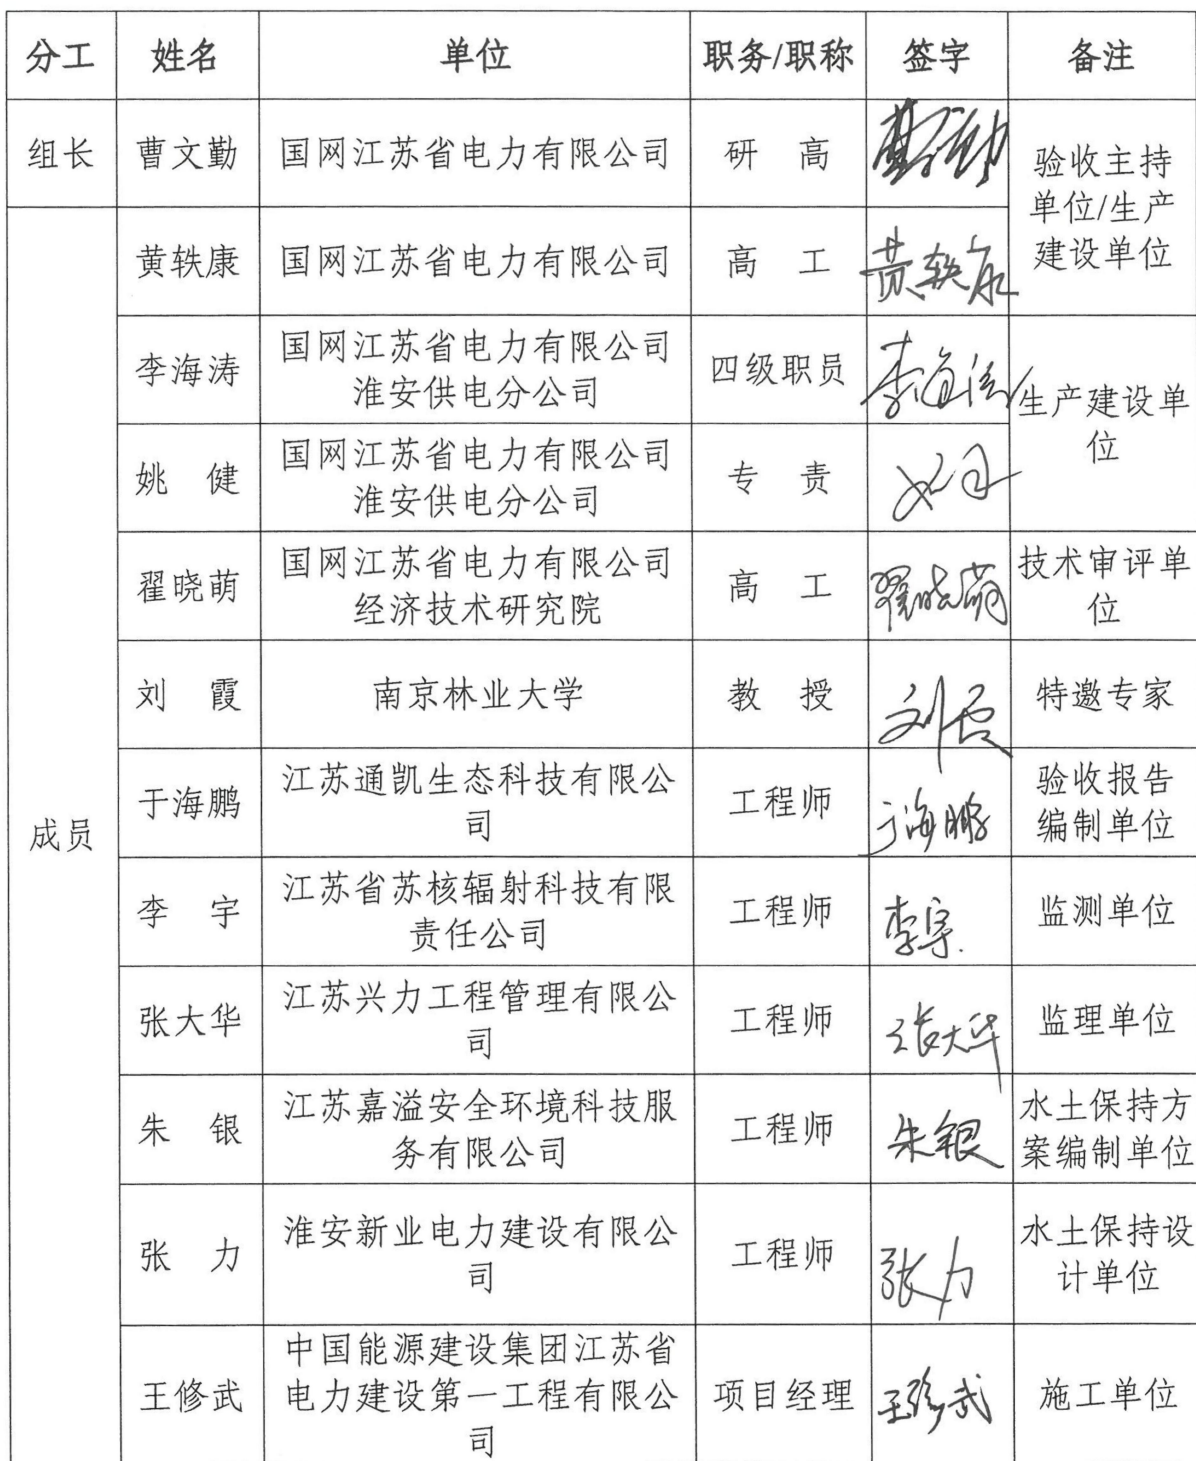 分工 姓名 单位 职务/职称 签字 备注
组长 曹文勤 国网江苏省电力有限公司 研 高
验收主持
单位/生产
建设单位
成员
黄轶康 国网江苏省电力有限公司 高 工 黄轶康
李海涛 国网江苏省电力有限公司
淮安供电分公司
四级职员 李海涛
生产建设单
位
姚 健 国网江苏省电力有限公司
淮安供电分公司
专 责
翟晓萌 国网江苏省电力有限公司
经济技术研究院
高 工 翟晓萌
技术审评单
位
刘 霞 南京林业大学 教 授 刘霞 特邀专家
于海鹏 江苏通凯生态科技有限公
司
工程师 于海鹏
验收报告
编制单位
李 宇 江苏省苏核辐射科技有限
责任公司
工程师 李宇 监测单位
张大华 江苏兴力工程管理有限公
司
工程师 张大华 监理单位
朱 银 江苏嘉溢安全环境科技服
务有限公司
工程师 朱银
水土保持方
案编制单位
张 力 淮安新业电力建设有限公
司
工程师 张力
水土保持设
计单位
王修武 中国能源建设集团江苏省
电力建设第一工程有限公
司
项目经理 王修武 施工单位